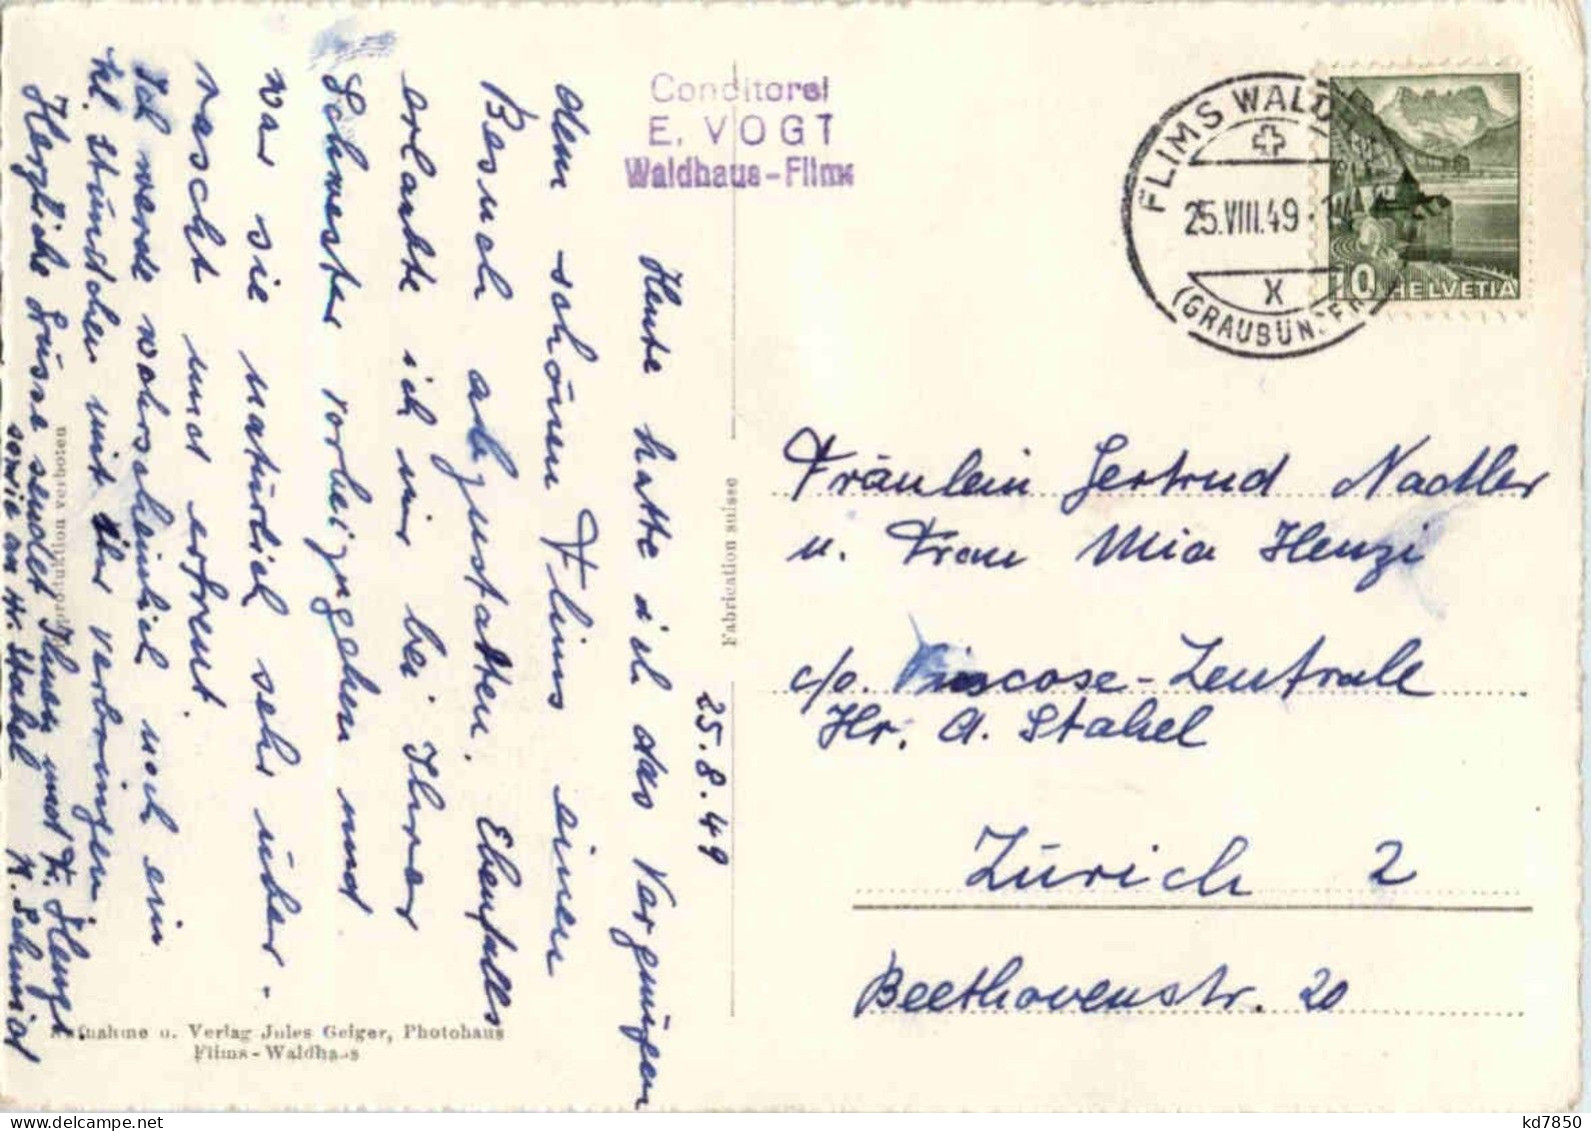 Conditorei
E. VOGT
Waldhaus-Flims
FLIMS WALDHAUS
25.VIII.49
X
(GRAUBÜNDEN)
10 HELVETIA
25.8.49
Heute hatte ich das Vergnügen
dem schönen Flims einen
Besuch abzustatten. Ebenfalls
erlaubte ich mir bei Ihrer
Schwester vorbeizugehen und
war sie natürlich sehr über-
rascht und erfreut.
Ich werde wahrscheinlich noch ein
kl. Stündchen mit Ihr verbringen
Herzliche Grüsse sendet Ihnen und F. Henzi
sowie an Hr. Stahel
N. Schmid
Fräulein Gertrud Nadler
u. Frau Mia Henzi
c/o. Viscose-Zentrale
Hr. A. Stahel
Zürich 2
Beethovenstr. 20
Fabrication suisse
Reproduktion verboten
Aufnahme u. Verlag Jules Geiger, Photohaus
Flims-Waldhaus
kd7850